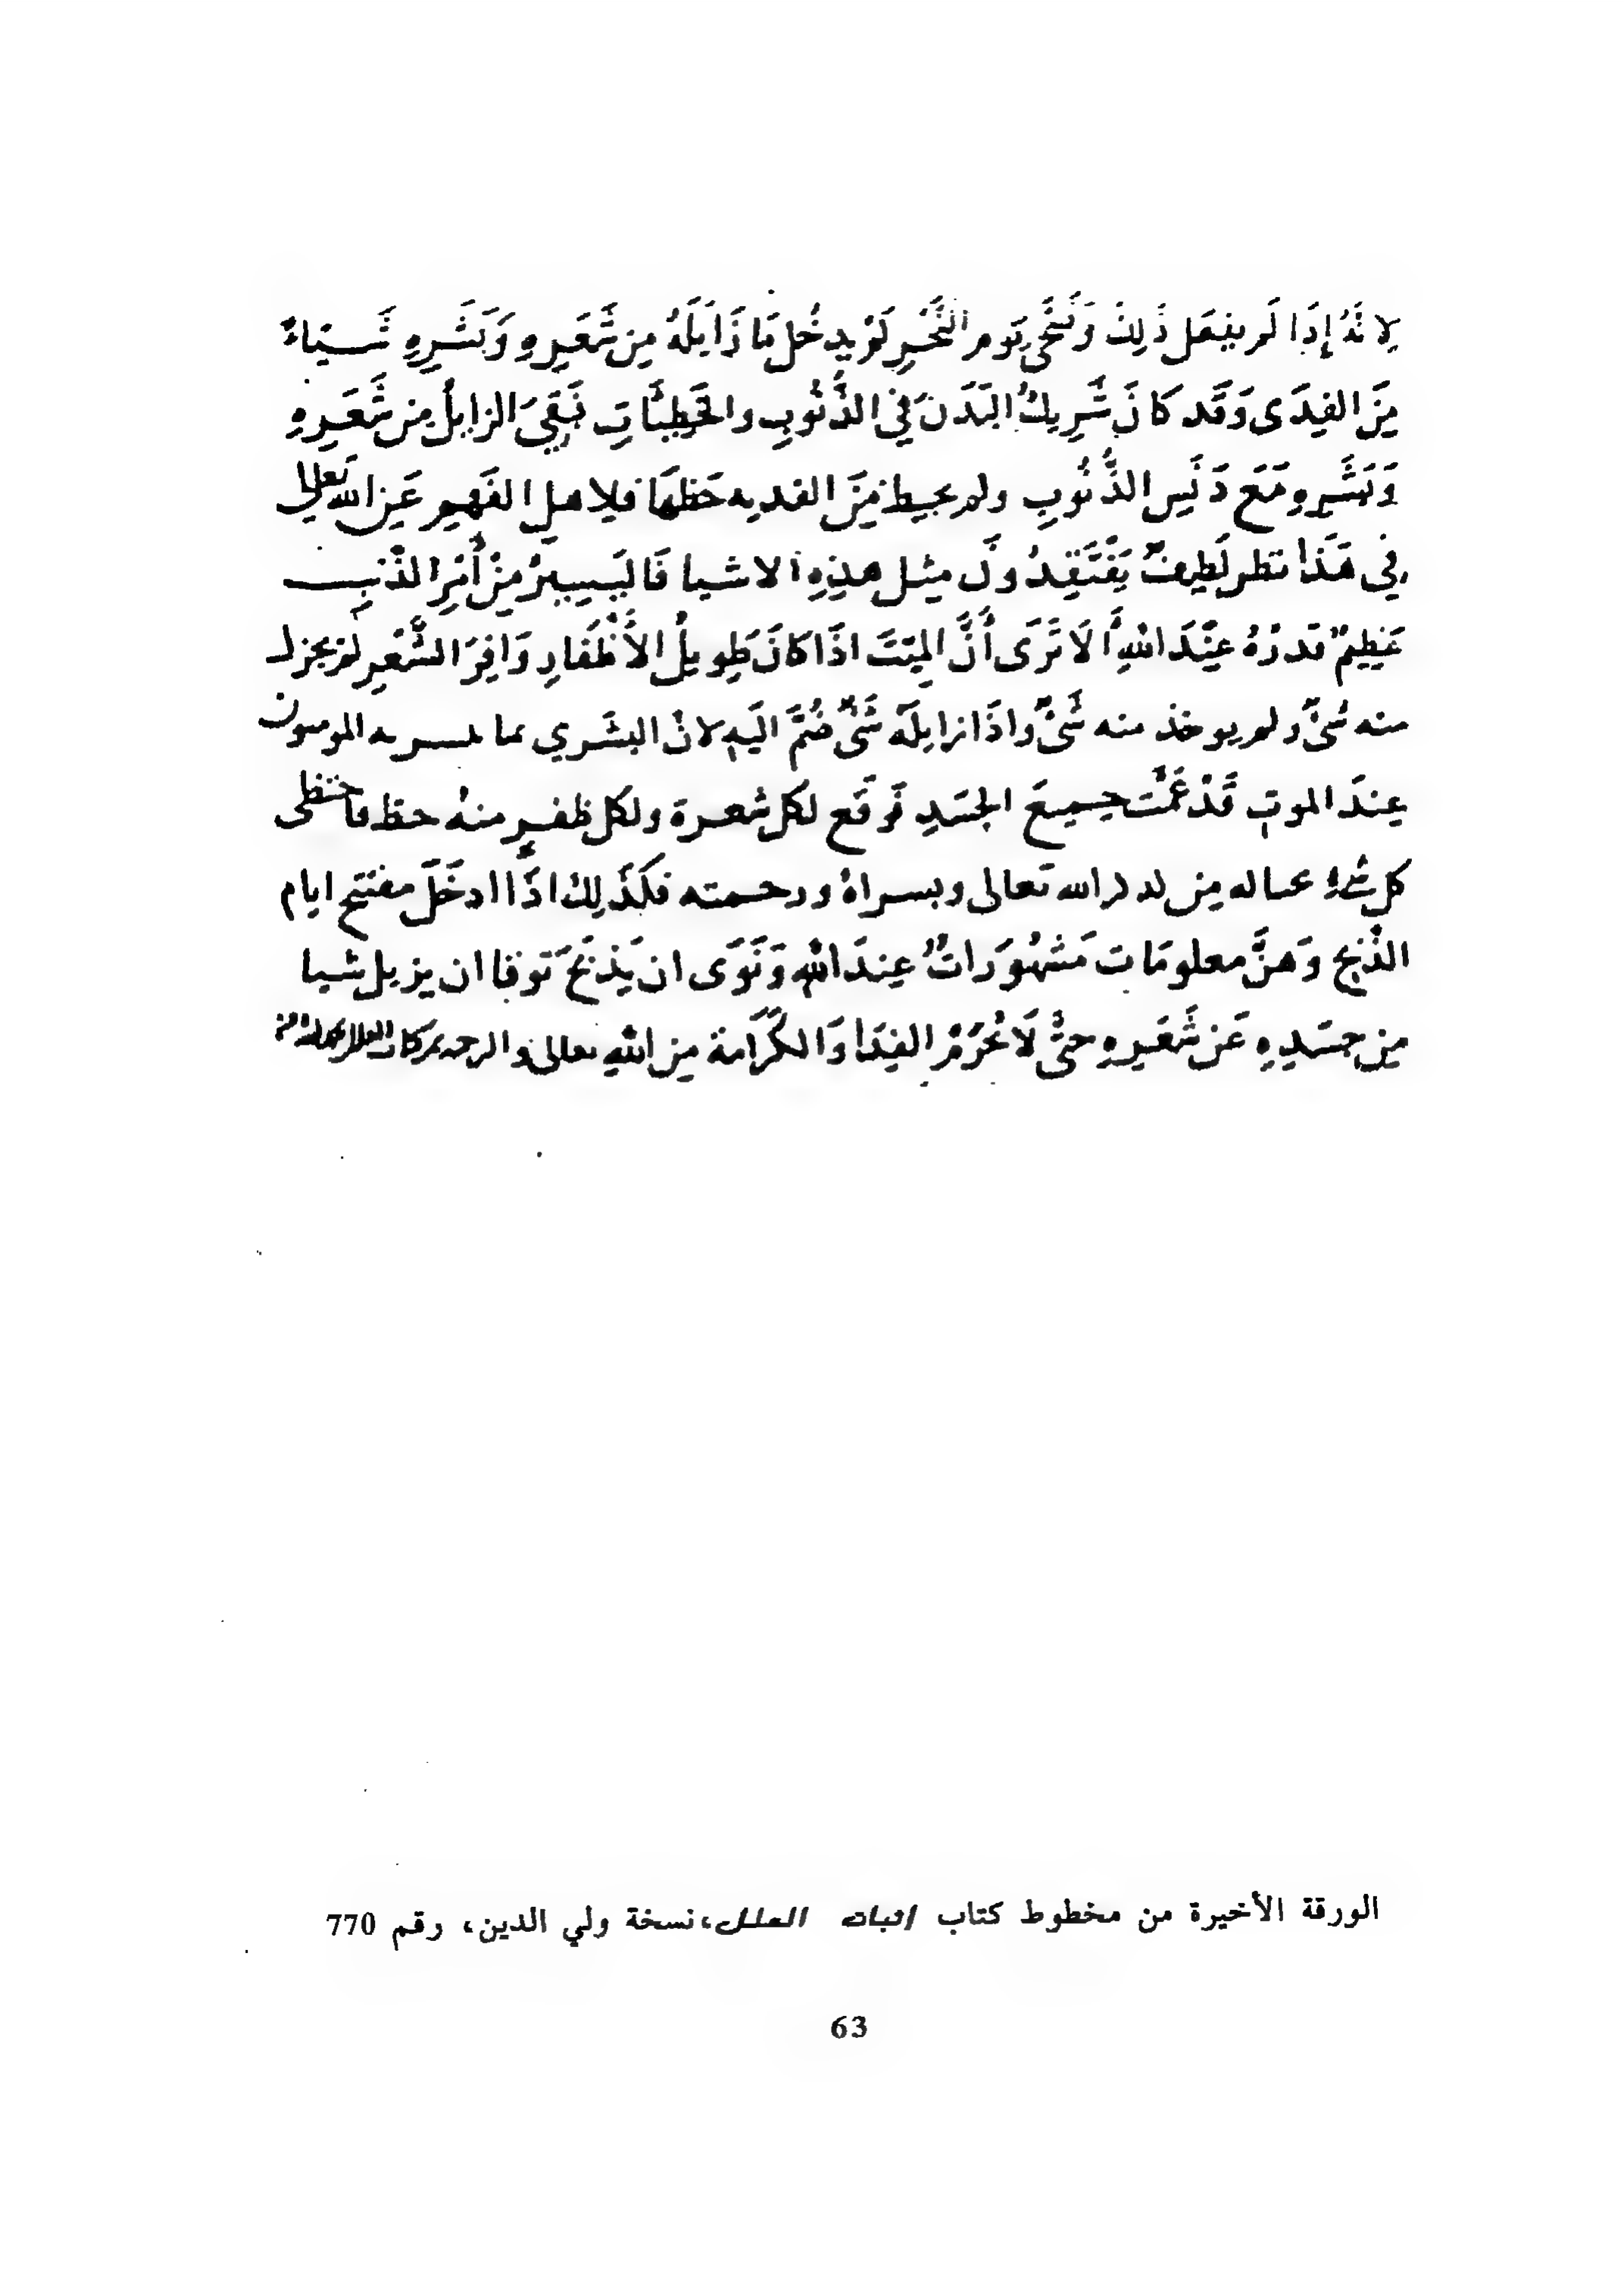 لِانَّهُ إِذَا لَم يفعَل ذَلِكَ وَضَحَّى يَوم النَّحْرِ لَمْ يدخُل مَا زَايَلَهُ مِن شَعَرِهِ وَبَشَرِهِ شَيئاً
مِنَ الفِدَى وَقَد كانَ شَرِيكُ البَدَنَ في الذُّنُوبِ والخَطِيئَاتِ فَبَقِيَ الزايلُ مِن شَعَرِهِ
وَبَشَرِهِ مَعَ دَنَسِ الذُّنُوبِ ولم مِنَ الفديه حَظهَا فلاهل الفَهمِ عَنِ الله تعالى
في هَذا نظر لَطِيفٌ يَفْتَقِدُونَ مِثل هَذِهِ الاشيا فَاليَسِيرُ مِنْ أَمْرِ الذَّنبِ
عَظِيمٌ قَدرُهُ عِنْدَ اللهِ أَلَا تَرَى أَنَّ المَيِّتَ اذَا كانَ طَوِيلُ الأَظْفَارِ وَافِرَ الشَّعْرِ لَمْ يجز
منه شَىٌ ولم يوخذ منه شَىٌ واذَا زايلَهُ شَىٌ ضُمَّ اليَهِ لانْ البشَري بما به
عِندَ الموتِ قَدْ عَمَّت جميعَ الجَسَدِ فَوقَع لكل شعرة ولكل ظفرٍ منهُ حظ فاحتظى
كل شىء من الله تعالى وبسراهُ ورحمته فكَذَلِكَ اذَا ادخَلَ مفتتح ايام
الذَّبح وَهنَّ معلومَات مَشهُورَاتٌ عِندَ اللهِ وَنَوَى ان يَذبَحَ تَوقا ان يزيل شيا
مِن جسَدِهِ عَن شَعَرِهِ حتَّى لَا تُحْرَمْ الفِدَا وَالكَرَامة مِن اللهِ تعالى والرحمه
الورقة الأخيرة من مخطوط كتاب اثبات العلل، نسخة ولي الدين، رقم 770
63